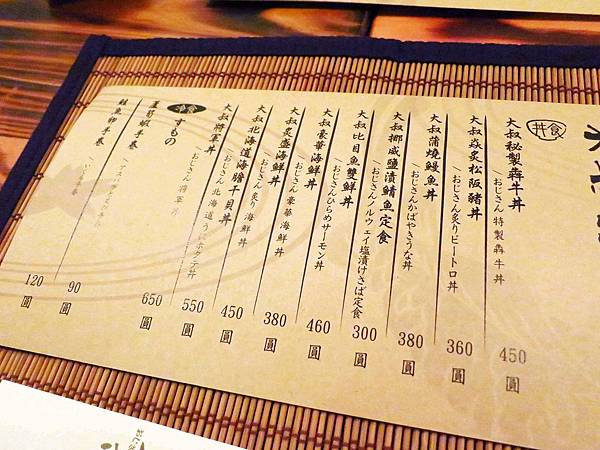 食丼
大叔秘製犇牛丼
おじさん特製犇牛丼
450圓
大叔焱炙松阪豬丼
おじさん炙りピートロ丼
360圓
大叔蒲燒鰻魚丼
おじさんかばやきうな丼
380圓
大叔挪威鹽漬鯖魚定食
おじさんノルウェイ塩漬けさば定食
300圓
大叔比目魚雙鮮丼
おじさんひらめサーモン丼
460圓
大叔豪華海鮮丼
おじさん豪華海鮮丼
380圓
大叔炙盛海鮮丼
おじさん炙り海鮮丼
450圓
大叔北海道海膽干貝丼
おじさん北海道うにホタテ丼
550圓
大叔將軍丼
おじさん將軍丼
650圓
冷食
すもの
蘆筍蝦手卷
90圓
鮭魚卵手卷
120圓